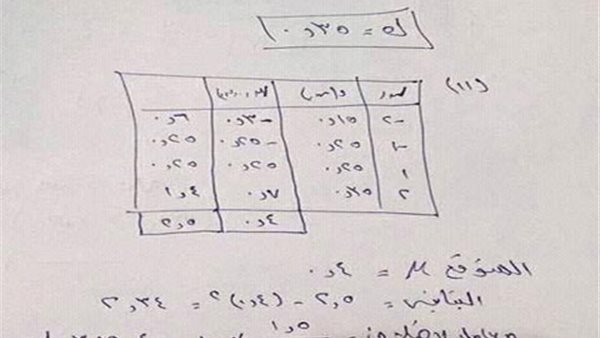 ل = ٠٫٣٥
(١١)
س د(س) س.د(س)
-٢ ٠٫١٥ -٠٫٣ ٠٫٦
-١ ٠٫٢٥ -٠٫٢٥ ٠٫٢٥
١ ٠٫٢٥ ٠٫٢٥ ٠٫٢٥
٢ ٠٫٣٥ ٠٫٧ ١٫٤
٠٫٤ ٢٫٥
المتوقع μ = ٠٫٤
التباين = ٢٫٥ - (٠٫٤)٢ = ٢٫٣٤
معامل الاختلاف = ١٫٥